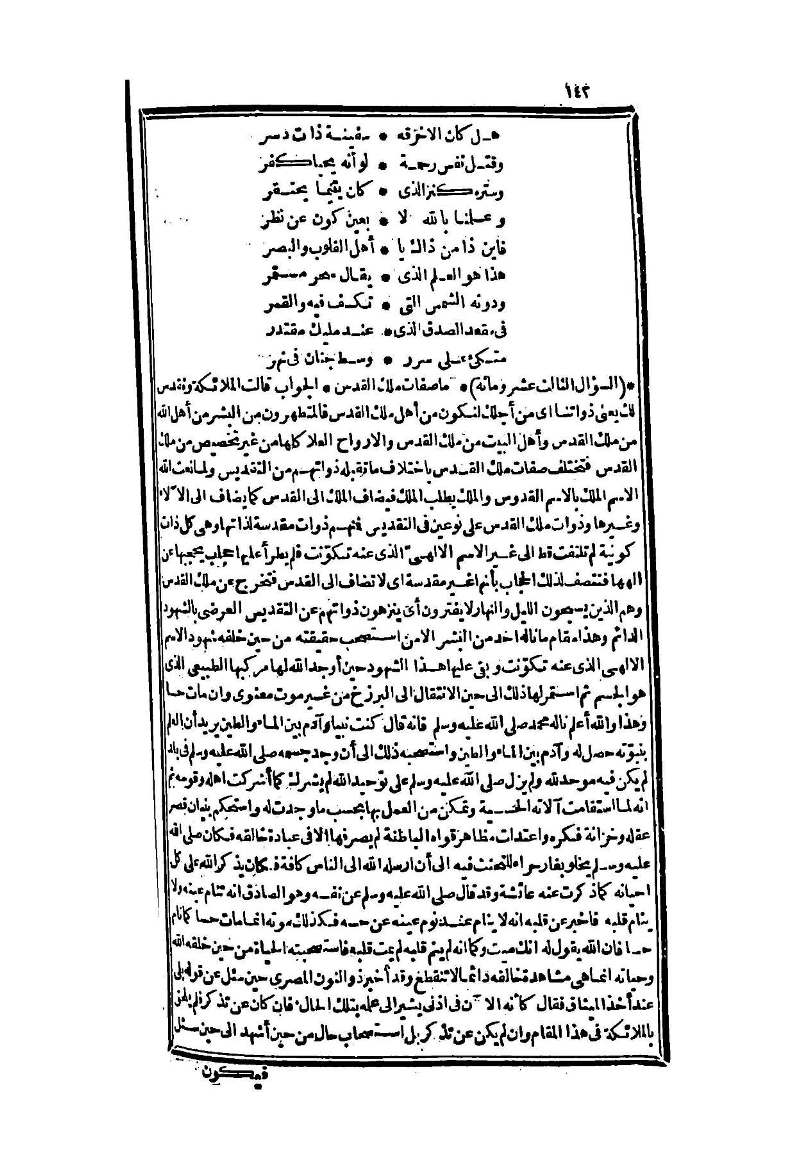 ١٤٢
هل كان الا خرقه * سفينة ذات دسر
وقتل نفس رحمة * لو أنه يحيا كفر
وستره كنز الذى * كان يتيما يحتقر
وعلمنا بالله لا * بعين كون عن نظر
فاين ذا من ذاك يا * أهل القلوب والبصر
هذا هو العلم الذى * يقال سحر مستمر
ودونه الشمس التى * تكسف فيه والقمر
فى مقعد الصدق الذى * عند مليك مقتدر
متكئ على سرر * وسط جنان فى نهر
* (السؤال الثالث عشر ومائة) * ما صفات ملك القدس * الجواب قالت الملائكة ونقدس
لك يعنى ذواتنا اى من أجلك لنكون من أهل ملك القدس فالمتطهرون من البشر من أهل الله
من ملك القدس وأهل البيت من ملك القدس والارواح العلا كلها من غير تخصيص من ملك
القدس فتختلف صفات ملك القدس باختلاف ما تقبله ذواتهم من التقديس ولما نعت الله
الاسم الملك بالاسم القدوس والملك يطلب الملك فيضاف الملك الى القدس كما يضاف الى الآلاء
وغيرها وذوات ملك القدس على نوعين فى التقديس فمنهم ذوات مقدسة لذاتها وهى كل ذات
كونية لم تلتفت قط الى غير الاسم الالهىّ الذى عنه تكوّنت فلم يطرأ عليها حجاب يحجبها عن
الهها فتتصف لذلك الحجاب بأنها غير مقدسة اى لا تضاف الى القدس فتخرج عن ملك القدس
وهم الذين يسبحون الليل والنهار لا يفترون أى ينزهون ذواتهم عن التقديس العرضى بالشهود
الدائم وهذا مقام ما ناله احد من البشر الا من استصحب حقيقته من حين خلقه شهود الاسم
الالهى الذى عنه تكوّنت وبقى عليها هذا الشهود حين أوجد الله لها مركبها الطبيعى الذى
هو الجسم ثم استمر لها ذلك الى حين الانتقال الى البرزخ من غير موت معنوى وان مات حسا
وهذا والله أعلم ناله محمد صلى الله عليه وسلم فانه قال كنت نبيا وآدم بين الماء والطين يريد أن العلم
بنبوّته حصل له وآدم بين الماء والطين واستصحبه ذلك الى أن وجد جسمه صلى الله عليه وسلم فى بلد
لم يكن فيه موحد لله ولم يزل صلى الله عليه وسلم على توحيد الله لم يشرك كما أشركت اهله وقومه ثم
انه لما استقامت آلاته الحسية وتمكن من العمل بها بحسب ما وجدت له واستحكم بنيان قصر
عقله وخزانة فكره واعتدلت مظاهر قواه الباطنة لم يصرفها الا فى عبادة خالقه فكان صلى الله
عليه وسلم يخلو بغار حراء للتحنث فيه الى أن ارسله الله الى الناس كافة فكان يذكر الله على كل
احيانه كما ذكرت عنه عائشة وقد قال صلى الله عليه وسلم عن نفسه وهو الصادق انه تنام عينه ولا
ينام قلبه فاخبر عن قلبه انه لا ينام عند نوم عينه عن حسه فكذلك موته انما مات حسا كما نام
حسا فان الله يقول له انك ميت وكما انه لم ينم قلبه لم يمت قلبه فاستصحبته الحياة من حين خلقه الله
وحياته انما هى مشاهدة خالقه دائما لا تنقطع وقد أخبر ذو النون المصرى حين سئل عن قوله بلى
عند أخذ الميثاق فقال كأنه الآن فى اذنى يشير الى علمه بتلك الحال فان كان عن تذكر فلم يلحق
بالملائكة فى هذا المقام وان لم يكن عن تذكر بل استصحاب حال من حين أشهد الى حين سئل
فيكون